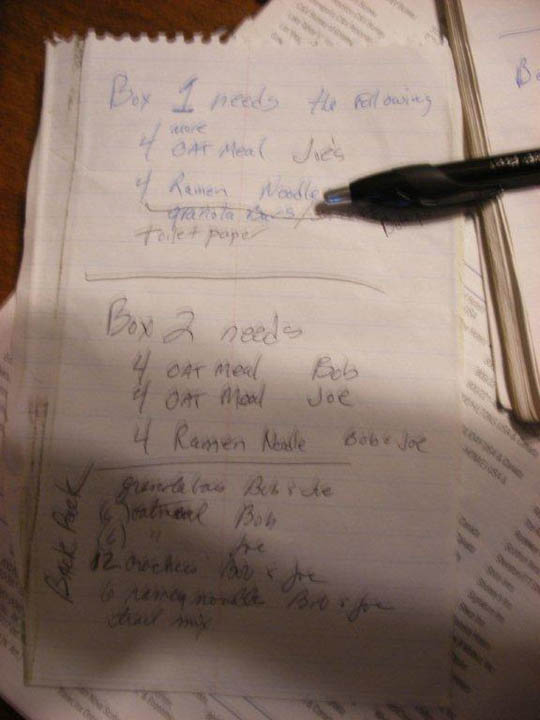 Box 1 needs the following
more
4 OAT Meal Joe's
4 Ramen Noodle
granola Bars
toilet paper
Box 2 needs
4 OAT Meal Bob
4 OAT Meal Joe
4 Ramen Noodle Bob & Joe
Back Pack
granola bars Bob & Joe
(6) oatmeal Bob
(6) " Joe
12 crackers Bob & Joe
6 ramen noodle Bob & Joe
trail mix